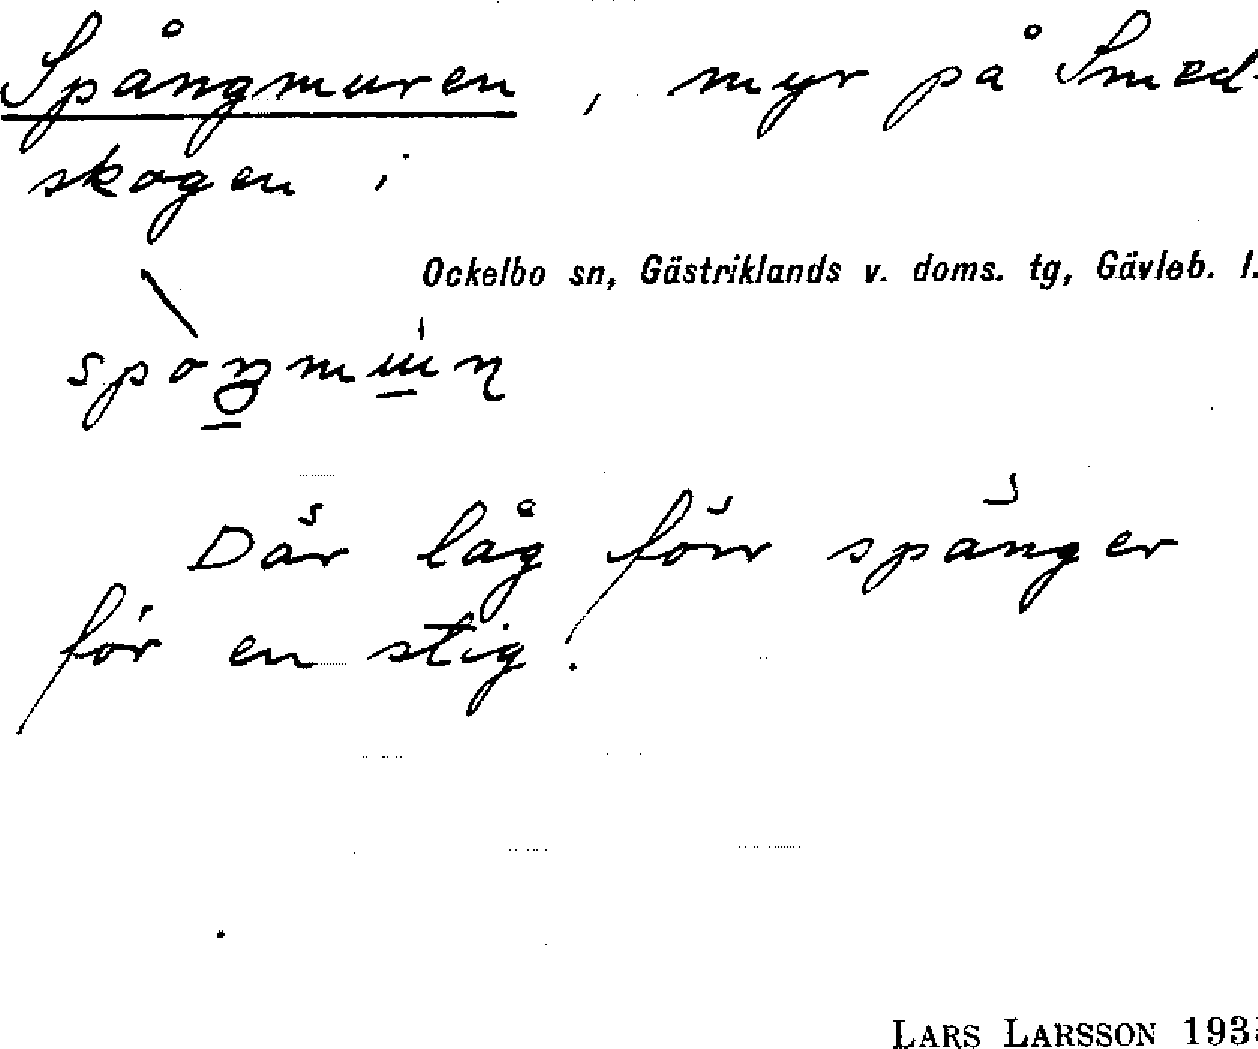 Spångmuren, myr på Smed-
skogen i
Ockelbo sn, Gästriklands v. doms. tg, Gävleb. l.
Där låg förr spänger
för en stig.
LARS LARSSON 193